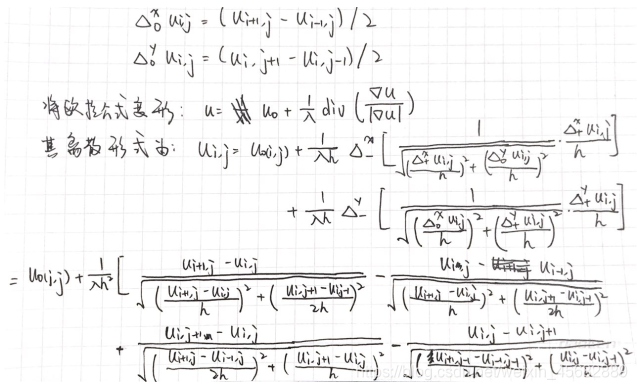 Δ₀ˣ u_{i,j} = (u_{i+1,j} - u_{i-1,j}) / 2
Δ₀ʸ u_{i,j} = (u_{i,j+1} - u_{i,j-1}) / 2
将欧拉公式变形: u = u₀ + \frac{1}{λ} div (\frac{∇u}{|∇u|})
其离散形式为: u_{i,j} = u_{0(i,j)} + \frac{1}{λh} Δ₋ˣ [ \frac{1}{\sqrt{(\frac{Δ₊ˣ u_{i,j}}{h})² + (\frac{Δ₀ʸ u_{i,j}}{h})²}} · \frac{Δ₊ˣ u_{i,j}}{h} ]
+ \frac{1}{λh} Δ₋ʸ [ \frac{1}{\sqrt{(\frac{Δ₀ˣ u_{i,j}}{h})² + (\frac{Δ₊ʸ u_{i,j}}{h})²}} · \frac{Δ₊ʸ u_{i,j}}{h} ]
= u_{0(i,j)} + \frac{1}{λh²} [ \frac{u_{i+1,j} - u_{i,j}}{\sqrt{(\frac{u_{i+1,j} - u_{i,j}}{h})² + (\frac{u_{i,j+1} - u_{i,j-1}}{2h})²}} - \frac{u_{i,j} - u_{i-1,j}}{\sqrt{(\frac{u_{i,j} - u_{i-1,j}}{h})² + (\frac{u_{i,j+1} - u_{i,j-1}}{2h})²}}
+ \frac{u_{i,j+1} - u_{i,j}}{\sqrt{(\frac{u_{i+1,j} - u_{i-1,j}}{2h})² + (\frac{u_{i,j+1} - u_{i,j}}{h})²}} - \frac{u_{i,j} - u_{i,j+1}}{\sqrt{(\frac{u_{i+1,j-1} - u_{i-1,j-1}}{2h})² + (\frac{u_{i,j} - u_{i,j-1}}{h})²}}